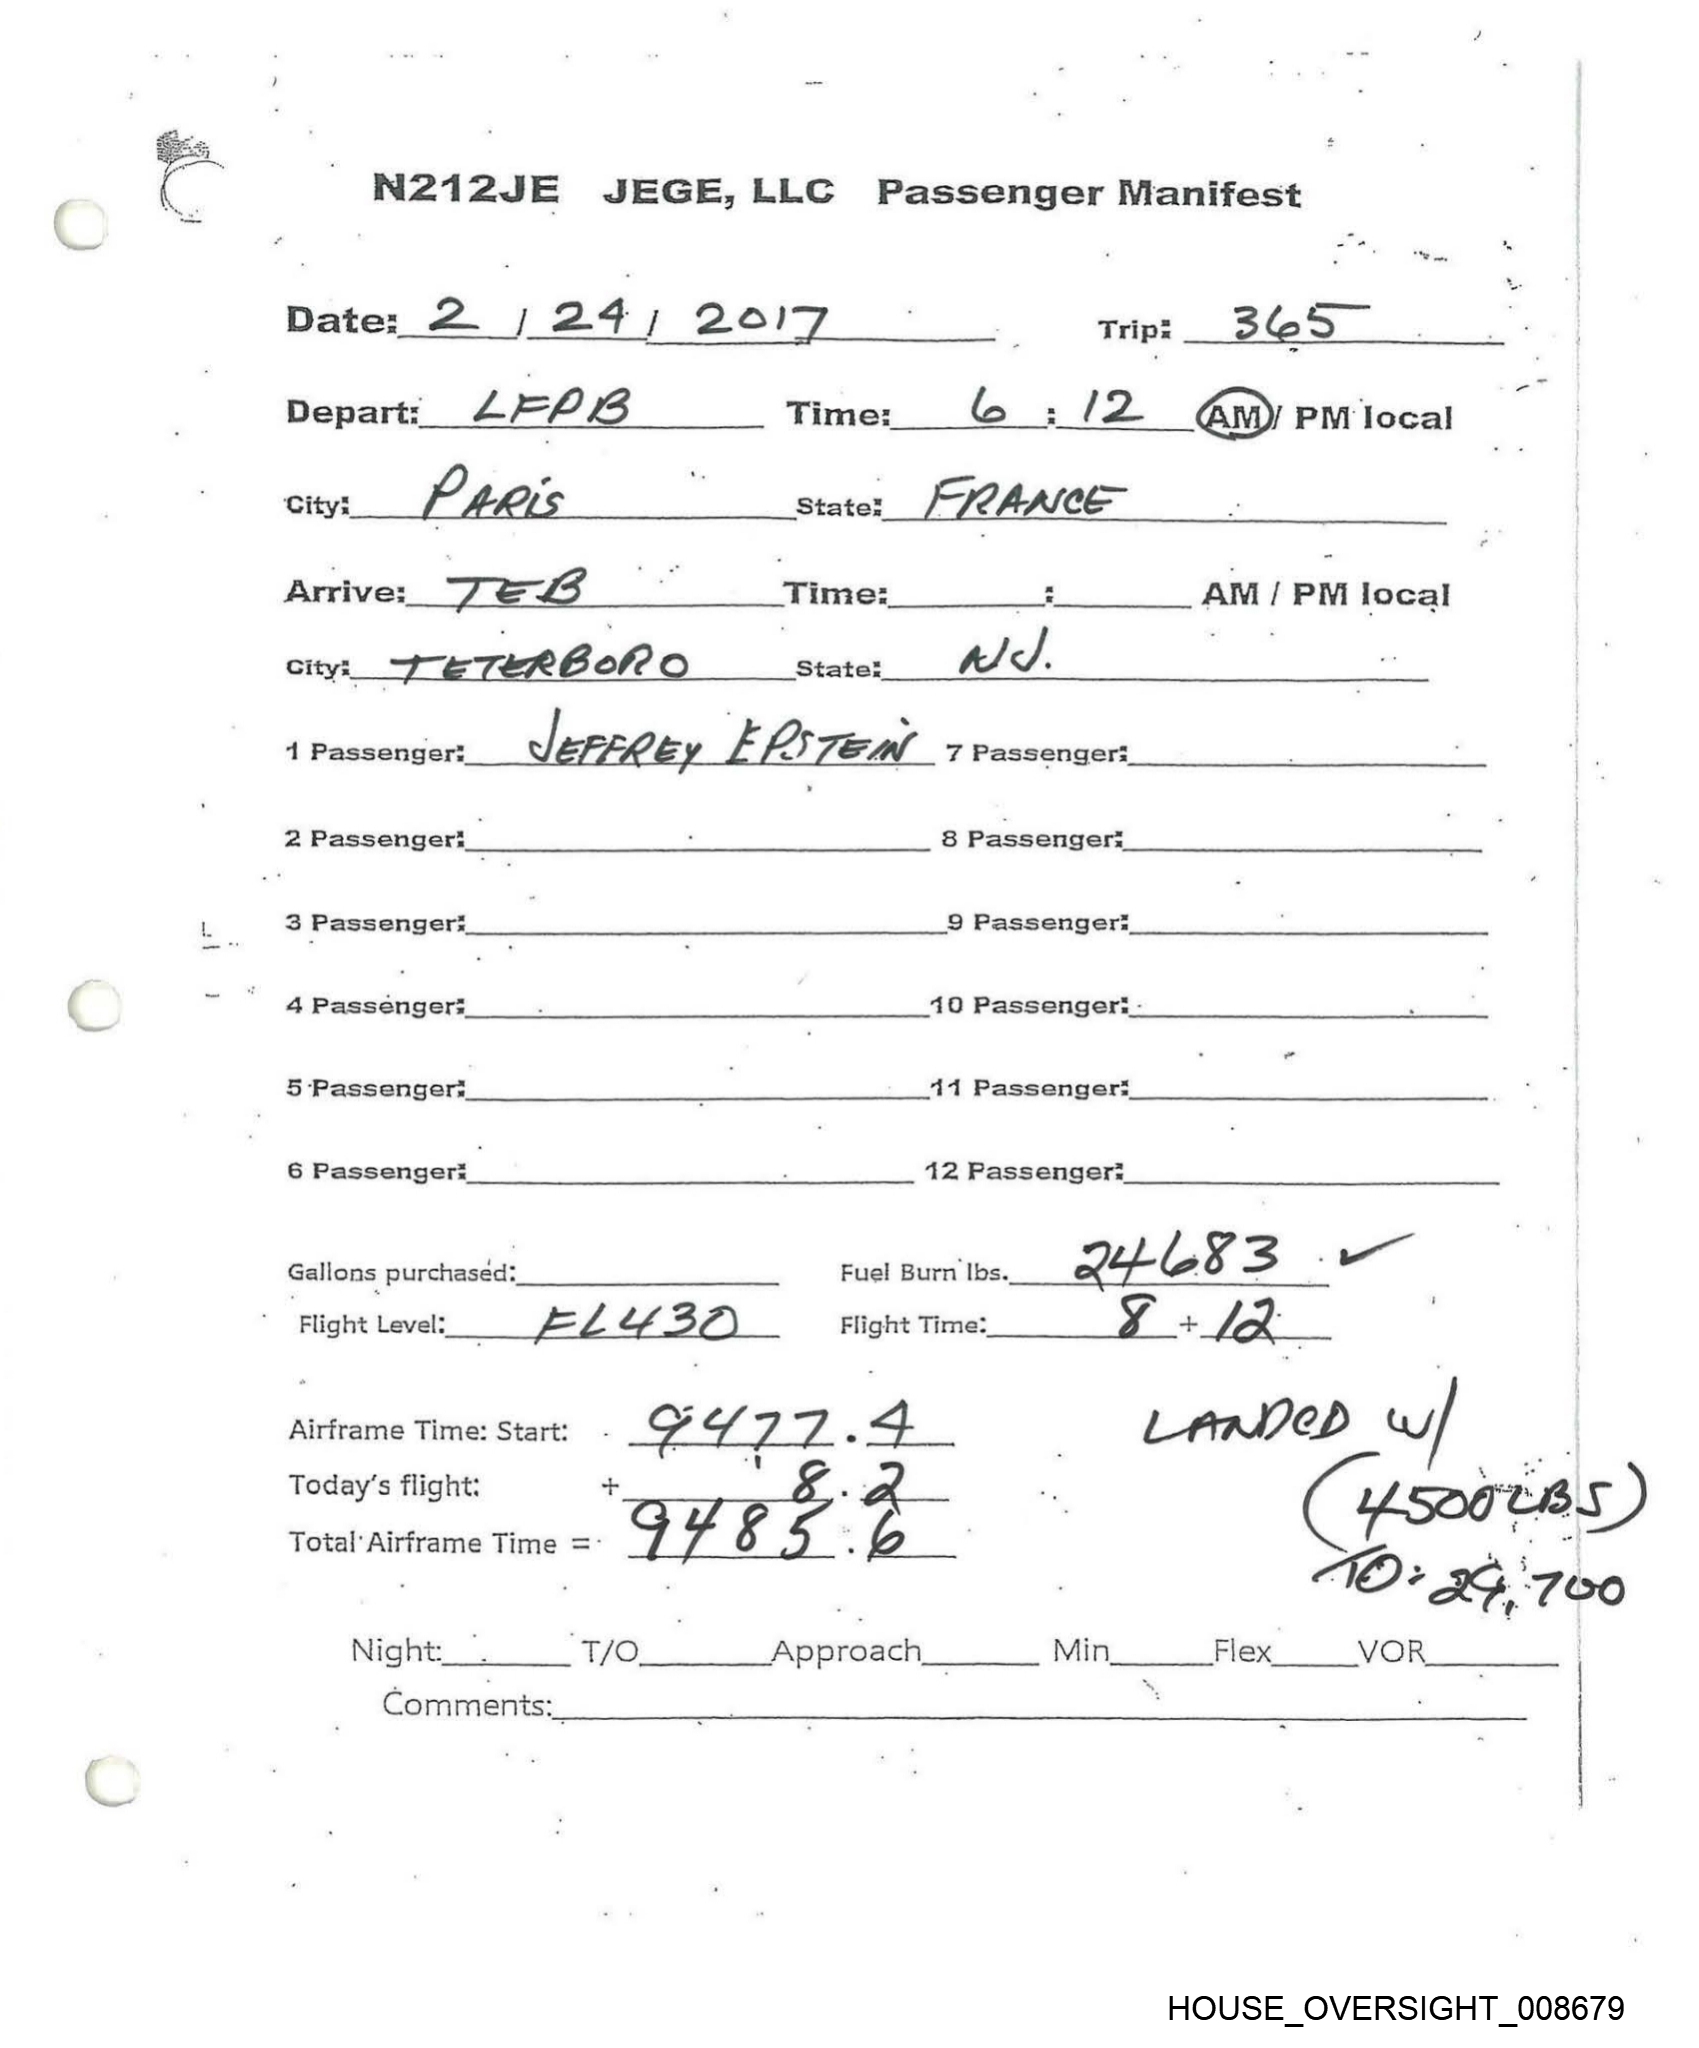 N212JE JEGE, LLC Passenger Manifest
Date: 2 / 24 / 2017 Trip: 365
Depart: LFPB Time: 6 : 12 AM / PM local
City: PARIS State: FRANCE
Arrive: TEB Time: : AM / PM local
City: TETERBORO State: NJ.
1 Passenger: JEFFREY EPSTEIN 7 Passenger:
2 Passenger: 8 Passenger:
3 Passenger: 9 Passenger:
4 Passenger: 10 Passenger:
5 Passenger: 11 Passenger:
6 Passenger: 12 Passenger:
Gallons purchased: Fuel Burn lbs. 24683 ✓
Flight Level: FL430 Flight Time: 8 + 12
Airframe Time: Start: 9477.4 LANDED W/
Today's flight: + 8.2 (4500 LBS)
Total Airframe Time = 9485.6
TO: 29,700
Night: T/O Approach Min Flex VOR
Comments:
HOUSE_OVERSIGHT_008679